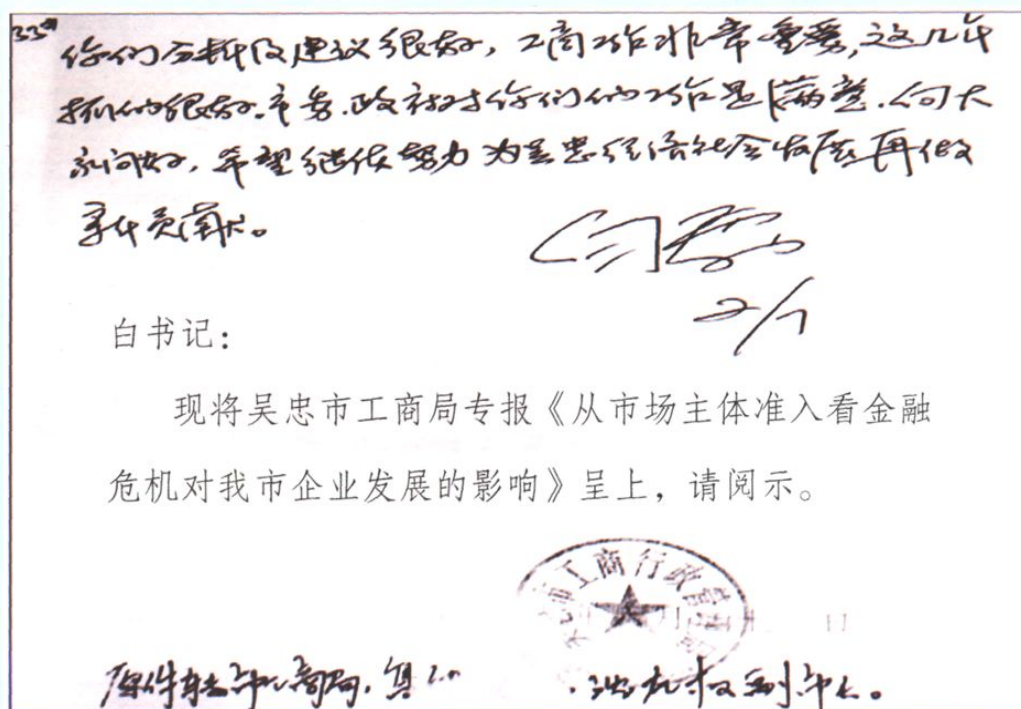 你们分析及建议很好，工商工作非常重要，这几年
抓的很好。市委、政府对你们的工作是满意。向大
家问好，希望继续努力为吴忠经济社会发展再做
新贡献。
2/1
白书记：
现将吴忠市工商局专报《从市场主体准入看金融
危机对我市企业发展的影响》呈上，请阅示。
市工商行政管理
原件转市工商局，复